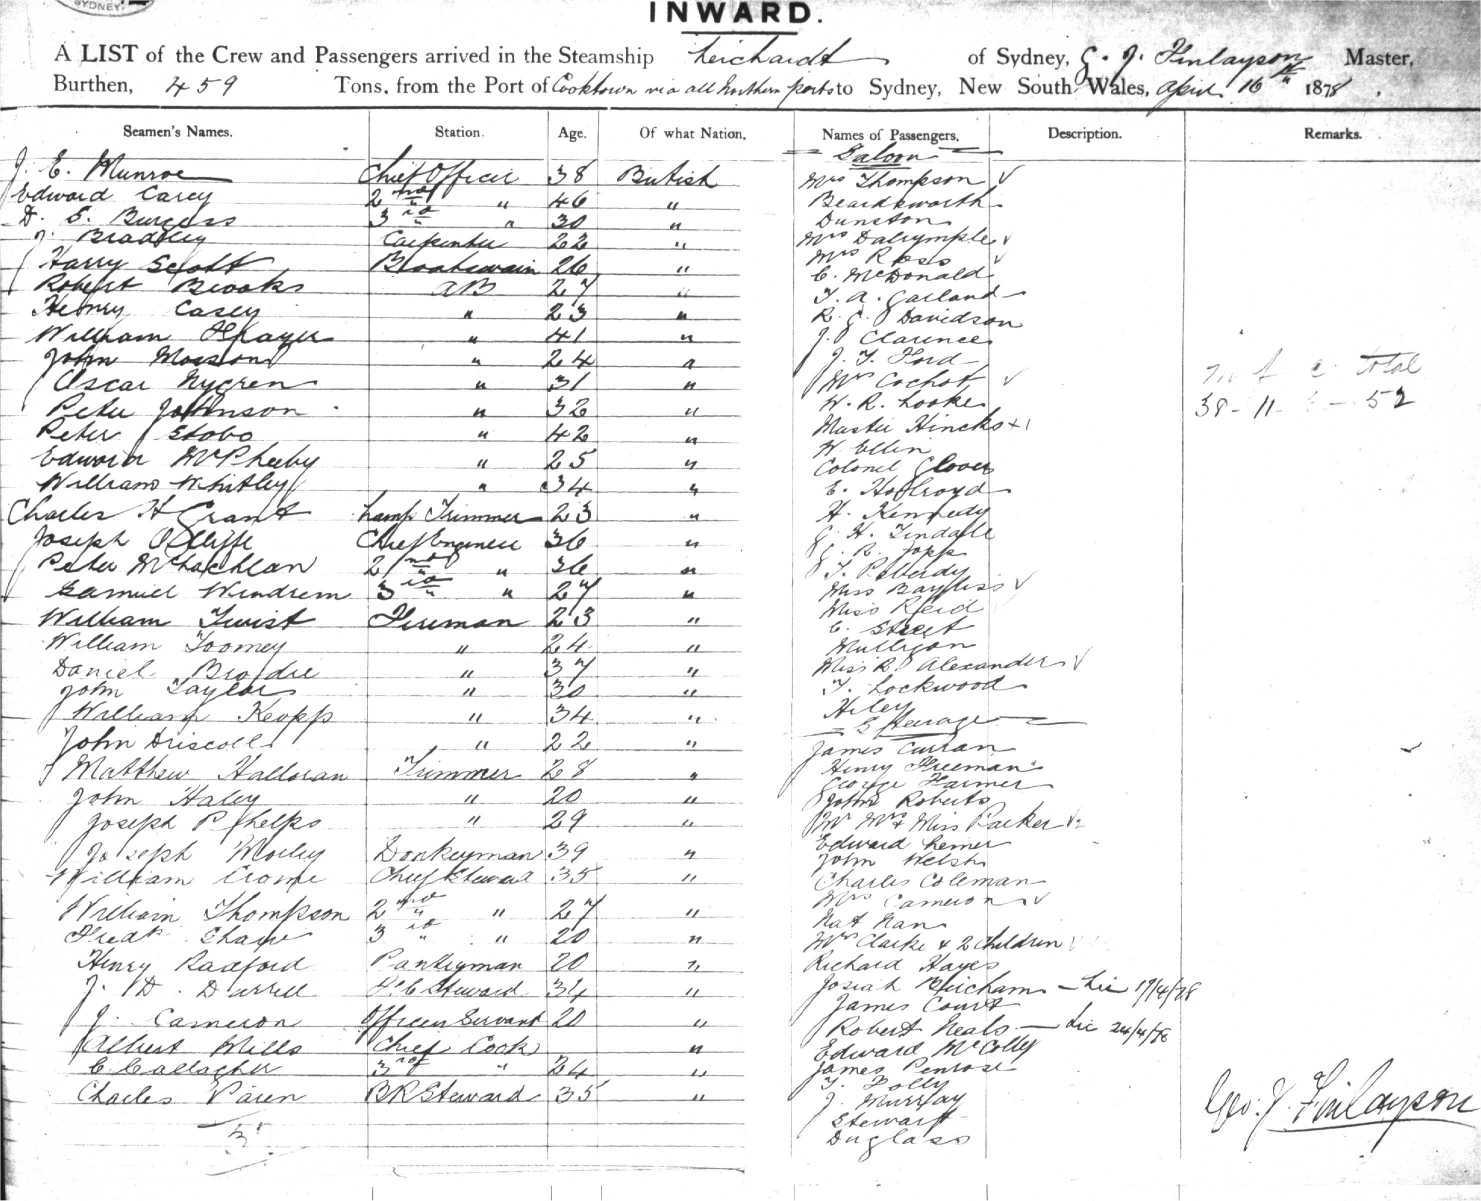 SYDNEY
INWARD.
A LIST of the Crew and Passengers arrived in the Steamship Leichardt of Sydney, G. J. Finlayson Master,
Burthen, 459 Tons, from the Port of Cooktown via all Northern ports to Sydney, New South Wales, April 16th 1878.
Seamen's Names. Station. Age. Of what Nation. Names of Passengers. Description. Remarks.
J. E. Munroe Chief Officer 38 British
Edward Carey 2nd " 46 "
D. E. Burgess 3rd " 30 "
J. Bradley Carpenter 22 "
Harry Scott Boatswain 26 "
Robert Brooks AB 27 "
Henry Casey " 23 "
William Thayer " 41 "
John Mosson " 24 "
Oscar Nygren " 31 "
Peter Johnson " 32 "
Peter Stobo " 42 "
Edward McPheeby " 25 "
William Whitley " 34 "
Charles H Grant Lamp Trimmer 23 "
Joseph Chief Engineer 36 "
Peter McLachlan 2nd " 36 "
Samuel Windrem 3rd " 27 "
William Twist Fireman 23 "
William Toomey " 24 "
Daniel Brodie " 37 "
John Taylor " 30 "
William Keopp " 34 "
John Driscoll " 22 "
Matthew Halloran Trimmer 28 "
John Haley " 20 "
Joseph Phelps " 29 "
Joseph Morley Donkeyman 39 "
William Crome Chief Steward 35 "
William Thompson 2nd " " 27 "
Fredk Shaw 3rd " " 20 "
Henry Radford Pantryman 20 "
J. D. Durrell F.C. Steward 34 "
J. Cameron Officers Servant 20 "
Albert Mills Chief Cook "
C. Callagher 3rd " 24 "
Charles Paren BR Steward 35 "
Saloon
Mrs Thompson
Beardsworth
Dunston
Mrs Dalrymple
Mrs Ross
C. McDonald
T. A. Garland
R. G. Davidson
J. Clarence
J. T. Ford
Mrs Cochot
W. R. Looke
Master Hincks + 1
W. Ellin
Colonel Glover
E. Holroyd
H. Kennedy
G. H. Tindale
G. R. Jopp
T. Peberdy
Miss Bayliss
Miss Reid
C. Street
Mulligan
Miss R. Alexander
T. Lockwood
Hiley
Steerage
James Curran
Henry Freeman
George Farmer
John Roberts
Mr Mrs & Miss Parker
Edward Lerner
John Welsh
Charles Coleman
Mrs Cameron
Nat Nan
Mrs Clarke & 2 children
Richard Hayes
Josiah Bircham - Lic 17/4/78
James Court
Robert Neals - Lic 24/4/78
Edward McColly
James Penrose
T. Polly
J. Murray
Stewart
Duglass
m f c total
38 - 11 - 3 - 52
Geo. J. Finlayson